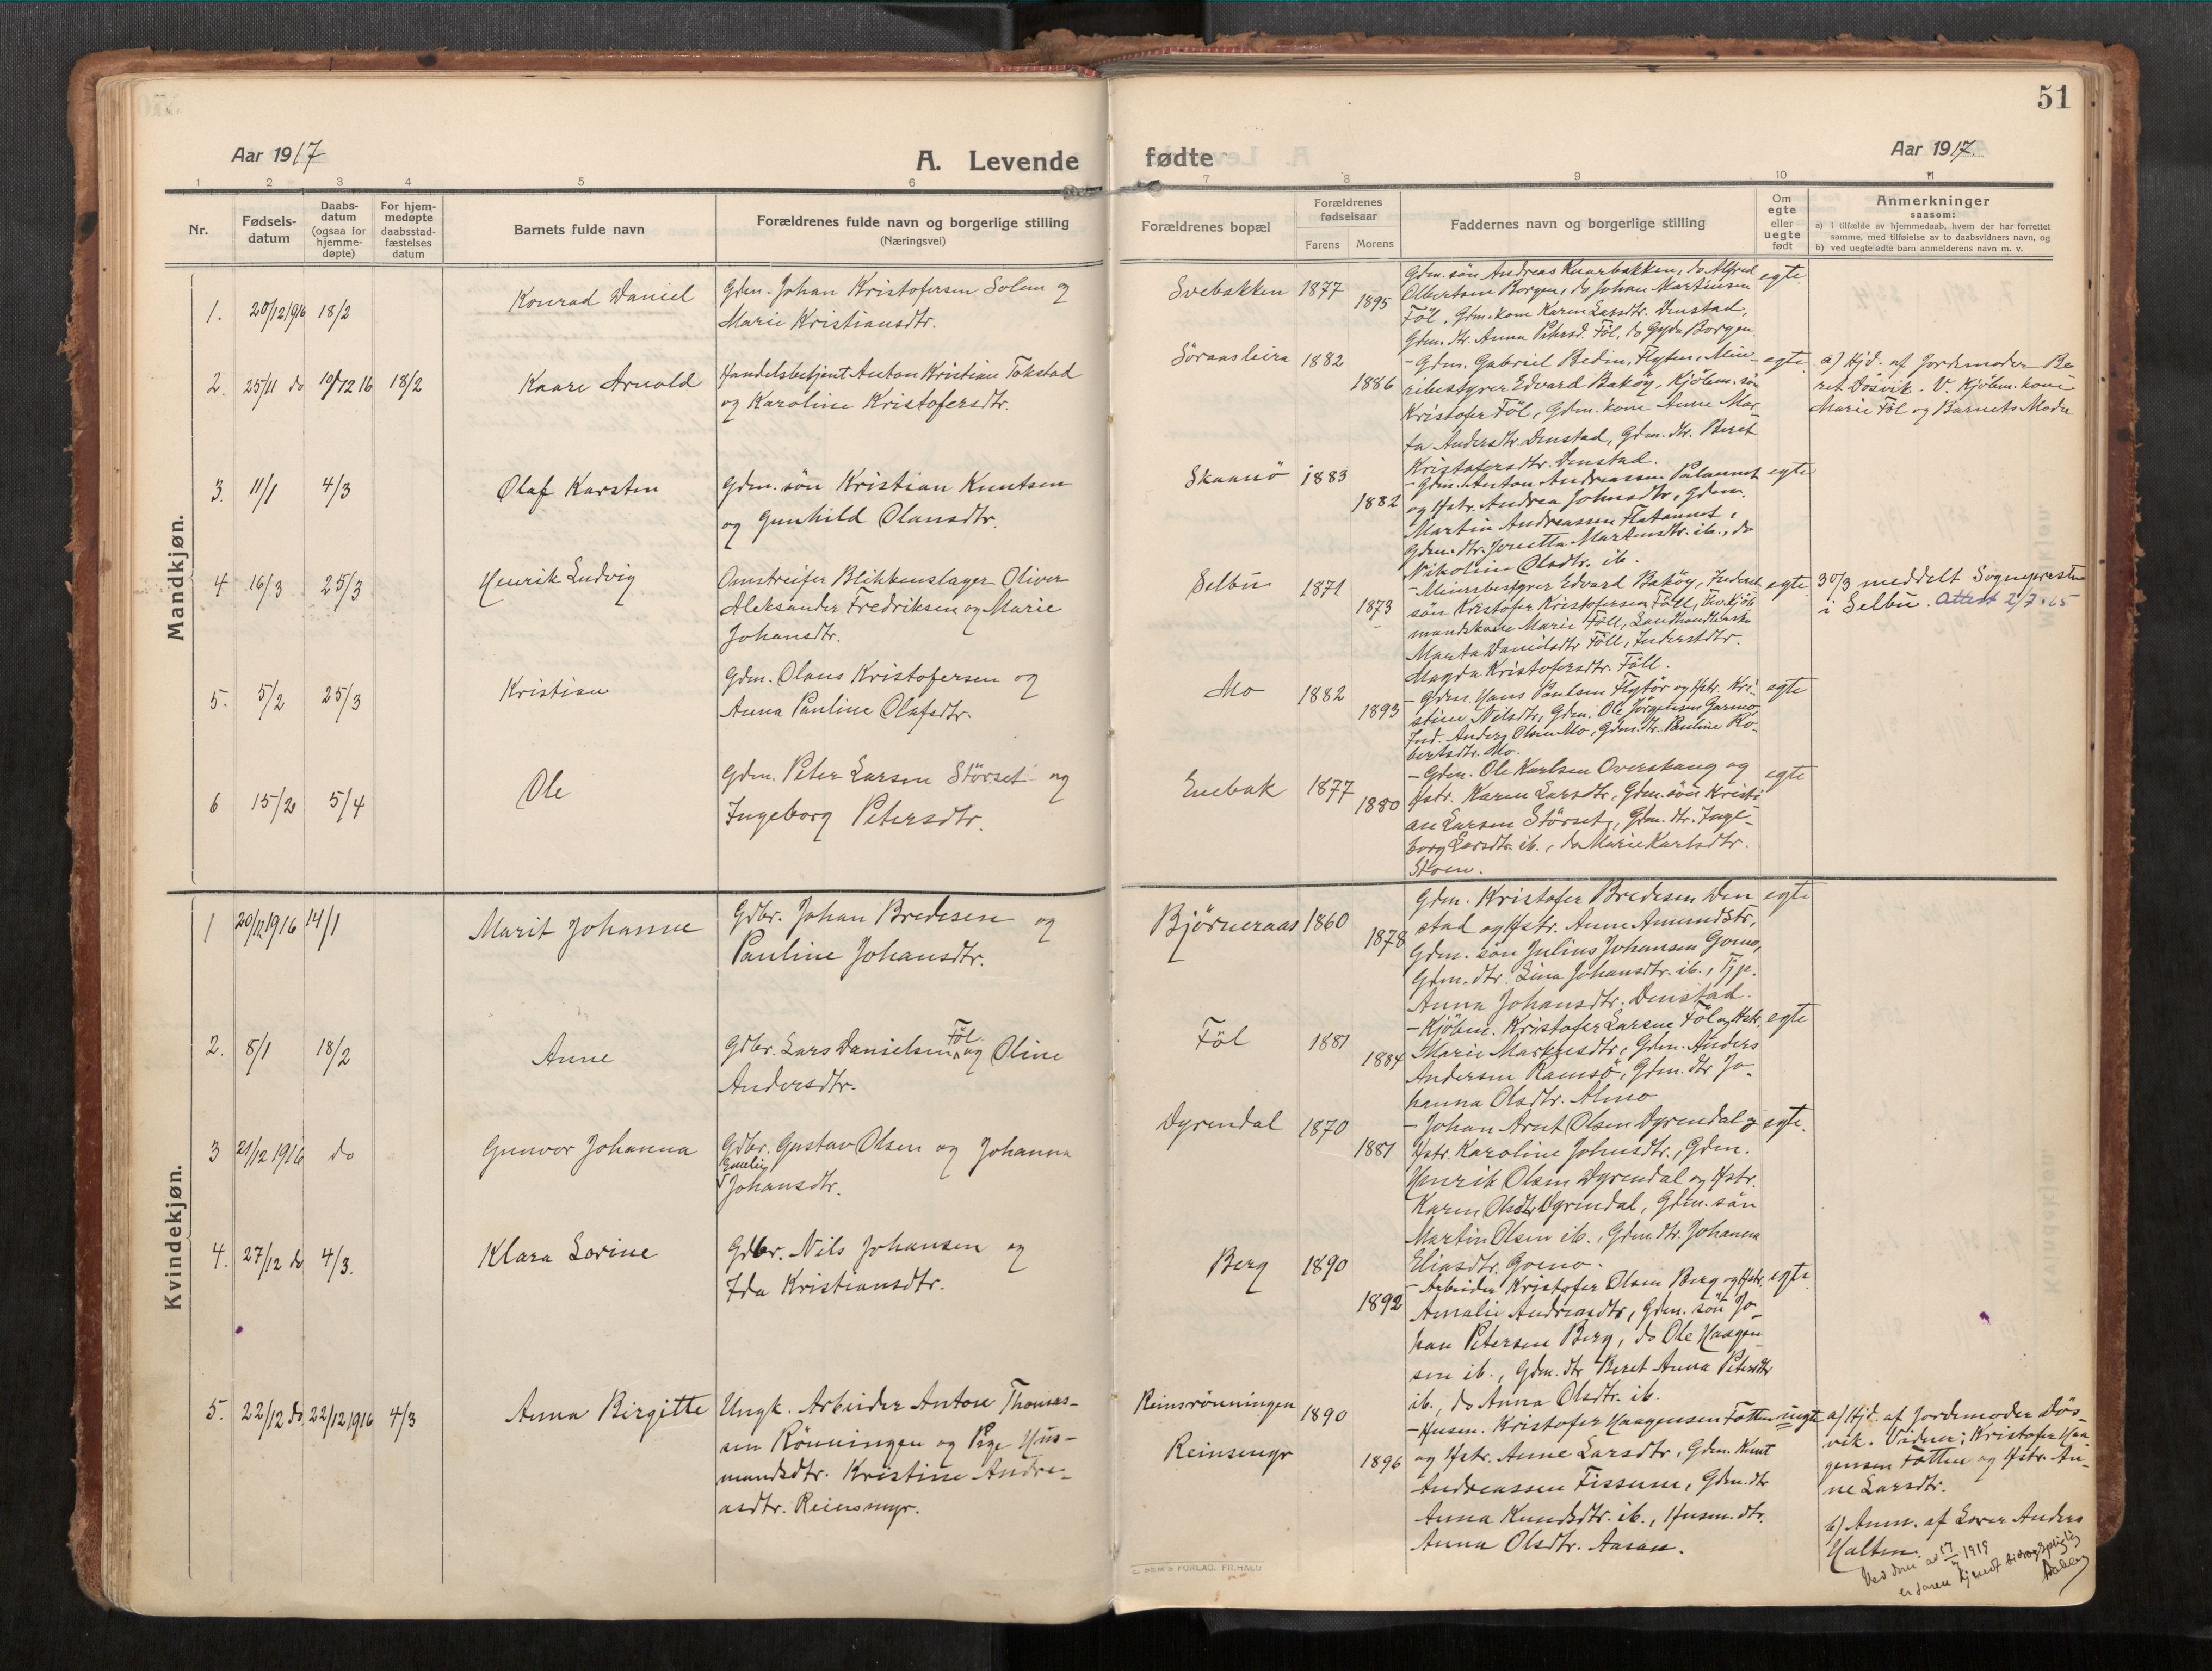 51
Aar 1917
A. Levende
fødte
Aar 1917.
1 2 3 4 5 6 7 8 9 10 11
Nr.
Fødsels-
datum
Daabs-
datum
(ogsaa for
hjemme-
døpte)
For hjem-
medøpte
daabsstad-
fæstelses
datum
Barnets fulde navn
Forældrenes fulde navn og borgerlige stilling
(Næringsvei)
Forældrenes bopæl
Forældrenes
fødselsaar
Farens Morens
Faddernes navn og borgerlige stilling
Om
egte
eller
uegte
født
Anmerkninger
saasom:
a) i tilfælde av hjemmedaab, hvem der har forrettet
samme, med tilføielse av to daabsvidners navn, og
b) ved uegtefødte barn anmelderens navn m. v.
Mandkjøn.
1. 20/12 1916 18/2
Konrad Daniel
Gdm. Johan Kristofersen Solem og
Marie Kristiansdtr.
Svebakken 1877
1895
Gdm. søn Andreas Knarbakken, do Alfred
Albertsen Borgen, do Johan Martinsen
Föl, Gdm. kone Karen Larsdtr. Denstad,
Gdm. dtr. Anna Petersd. Föl, do Gyda Borgen.
egte.
2. 25/11 do 10/12 16 18/2
Kaare Arnold
Handelsbetjent Anton Kristian Tokstad
og Karoline Kristofersdtr.
Söraasleira 1882
1886
- Gdm. Gabriel Bedin. Flyten, Mei-
ribestyrer Edvard Baköy, Kjöbm. søn
Kristofer Föl, Gdm. kone Anne Mar-
ta Andersdtr. Denstad, Gdm. dtr. Beret
Kristofersdtr. Denstad.
egte.
a) Hjd. af Jordemoder Be-
ret Dösvik. V. Kjöbm. kone
Marie Föl og Barnets Moder
3. 11/1 4/3
Olaf Karsten
Gdm. søn Kristian Knutsen
og Gunhild Olansdtr.
Skaanö 1883
1882
- Gdm. Anton Andreassen
og Hstr. Andrea Johnsdtr, Gdm.
Martin Andreassen Flataunet,
Gdm. dtr. Martinsdtr. ib., do
Nikoline Olsdtr. ib.
egte
4 16/3 25/3
Henrik Ludvig
Omstreifer Blikkenslager Oliver
Aleksander Fredriksen og Marie
Johansdtr.
Selbu 1871
1873
- Meieribestyrer Edvard Baköy, Inderst
søn Kristofer Kristofersen Föll,
mandskone Marie Föll, Landhandlerske
Marta Danielsdtr Föll, Inderstdtr.
Magda Kristofersdtr. Föll.
egte
30/3 meddelt Sognepresten
i Selbu. Attest 2/7-65
5. 5/2 25/3
Kristian
Gdm. Olaus Kristofersen og
Anna Pauline Olafsdtr.
Mo 1882
1893
- Gdm. Hans Paulsen Flytör og Hstr. Kri-
stine Nilsdtr, Gdm. Ole Jörgensen Garmo,
Ind. Anders Olsen Mo, Gdm. dtr. Pauline Ro-
bertsdtr. Mo.
egte
6 15/2 5/4
Ole
Gdm. Peter Larsen Störset og
Ingeborg Petersdtr.
Enebak 1877
1880
- Gdm. Ole Karlsen Overskaug og
Hstr. Karen Larsdtr, Gdm. søn Kristi-
an Larsen Störset, Gdm. dtr. Inge-
borg Larsdtr ib., do Marie Karlsdtr.
Moen.
egte
Kvindekjøn.
1 20/12 1916 14/1
Marit Johanne
Gdbr. Johan Bredesen og
Pauline Johansdtr.
Bjørneraas 1860
1878
Gdm. Kristofer Bredesen Den
stad og Hstr. Anne Amundsdtr,
Gdm. søn Julius Johansen Gomo,
Gdm. dtr. Lina Johansdtr. ib., Tjp.
Anna Johansdtr. Denstad.
egte
2. 8/1 18/2
Anne
Gdbr. Lars Danielsen Föl og Oline
Andersdtr.
Föl 1881
1884
- Kjöbm. Kristofer Larsen Föl og Hstr.
Marie Markusdtr, Gdm. Anders
Andersen Ramsö, Gdm. dtr Jo-
hanna Olsdtr. Almo
egte
3 21/12 1916 do
Gunvor Johanna
Gdbr. Gustav Olsen og Johanna
Emelie
Johansdtr.
Dyrendal 1870
1881
- Johan Arnt Olsen Dyrendal og
Hstr. Karoline Johnsdtr., Gdm.
Henrik Olsen Dyrendal og Hstr.
Karen Olsdtr Dyrendal, Gdm. søn
Martin Olsen ib., Gdm. dtr. Johanna
Eliasdtr. Gomo.
egte.
4. 27/12 do 4/3.
Klara Lovine
Gdbr. Nils Johansen og
Ida Kristiansdtr.
Berg 1890
1892
- Arbeider Kristofer Olsen Berg og Hstr.
Amalie Andreasdtr, Gdm. søn Jo-
han Petersen Berg, do Ole Haagen-
sen ib., Gdm. dtr Beret Anna Petersdtr
ib., do Anna Olsdtr. ib.
egte
5. 22/12 do. 22/12 1916 4/3
Anna Birgitte
Ungk. Arbeider Anton Thomas-
sen Rönningen og Pige Hus-
mandsdtr. Kristine Andre-
asdtr. Reinsmyr.
Reinsrönningen 1890
Reinsmyr 1896
- Husm. Kristofer Haagensen Fotten
og Hstr. Anne Larsdtr, Gdm. Knut
Andreassen Fissum, Gdm. dtr
Anna Knudsdtr. ib., Husm. dtr.
Anna Olsdtr. Aasan.
uegte
a) Hjd. af Jordemoder Dös-
vik. Vidner: Kristofer Haa-
gensen Fotten og Hstr. An-
ne Larsdtr.
b) Anm. af Anders
Halten.
Ved dom av 17/7 1919
er faren kjendt bidragspligtig